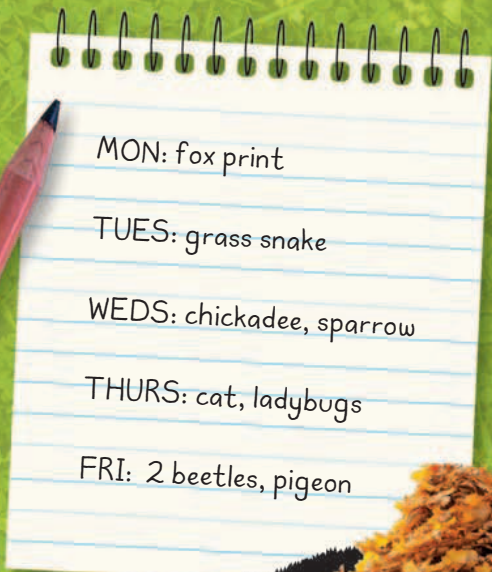 MON: fox print
TUES: grass snake
WEDS: chickadee, sparrow
THURS: cat, ladybugs
FRI: 2 beetles, pigeon